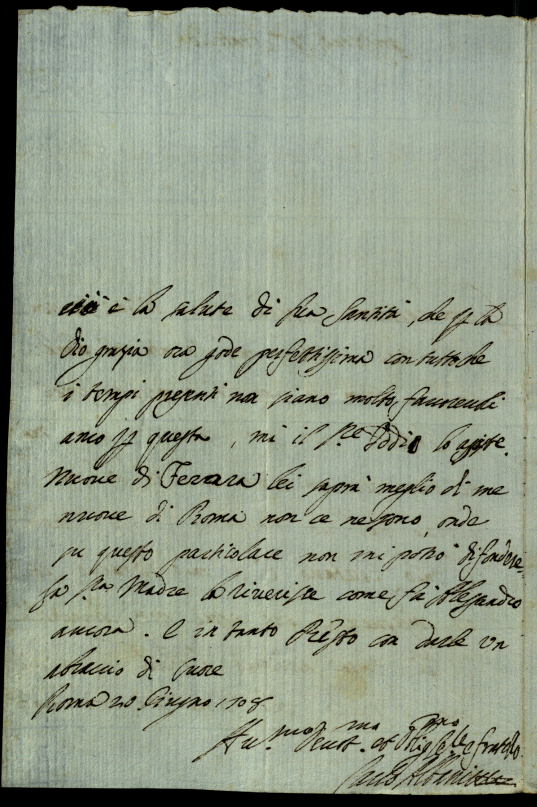 ciò è la salute di Sua Santità, che p la
Dio grazia ora gode perfettissima con tutto che
i tempi presenti non siano molto favorevoli
anco p questa, mà il Sre Iddio lo assiste.
Nuove di Ferrara lei saprà meglio di me
nuove di Roma non ce ne sono, onde
su questo particolare non mi posso difondere,
la Sra Madre la riverisce come fà Alessandro
ancora. E in tanto resto con darle un
abraccio di cuore
Roma 20. Giugno 1708
Hu.mo Devot.mo et Oblig.mo fratello
Carlo Albani